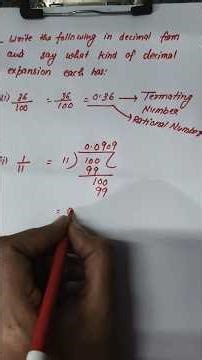 Write the following in decimal form
and say what kind of decimal
expansion each has:
i) 36/100 = 36/100 = 0.36 → Termating
Number
→ Rational Number
ii) 1/11 = 11) 100 ( 0.0909
99
100
99
=